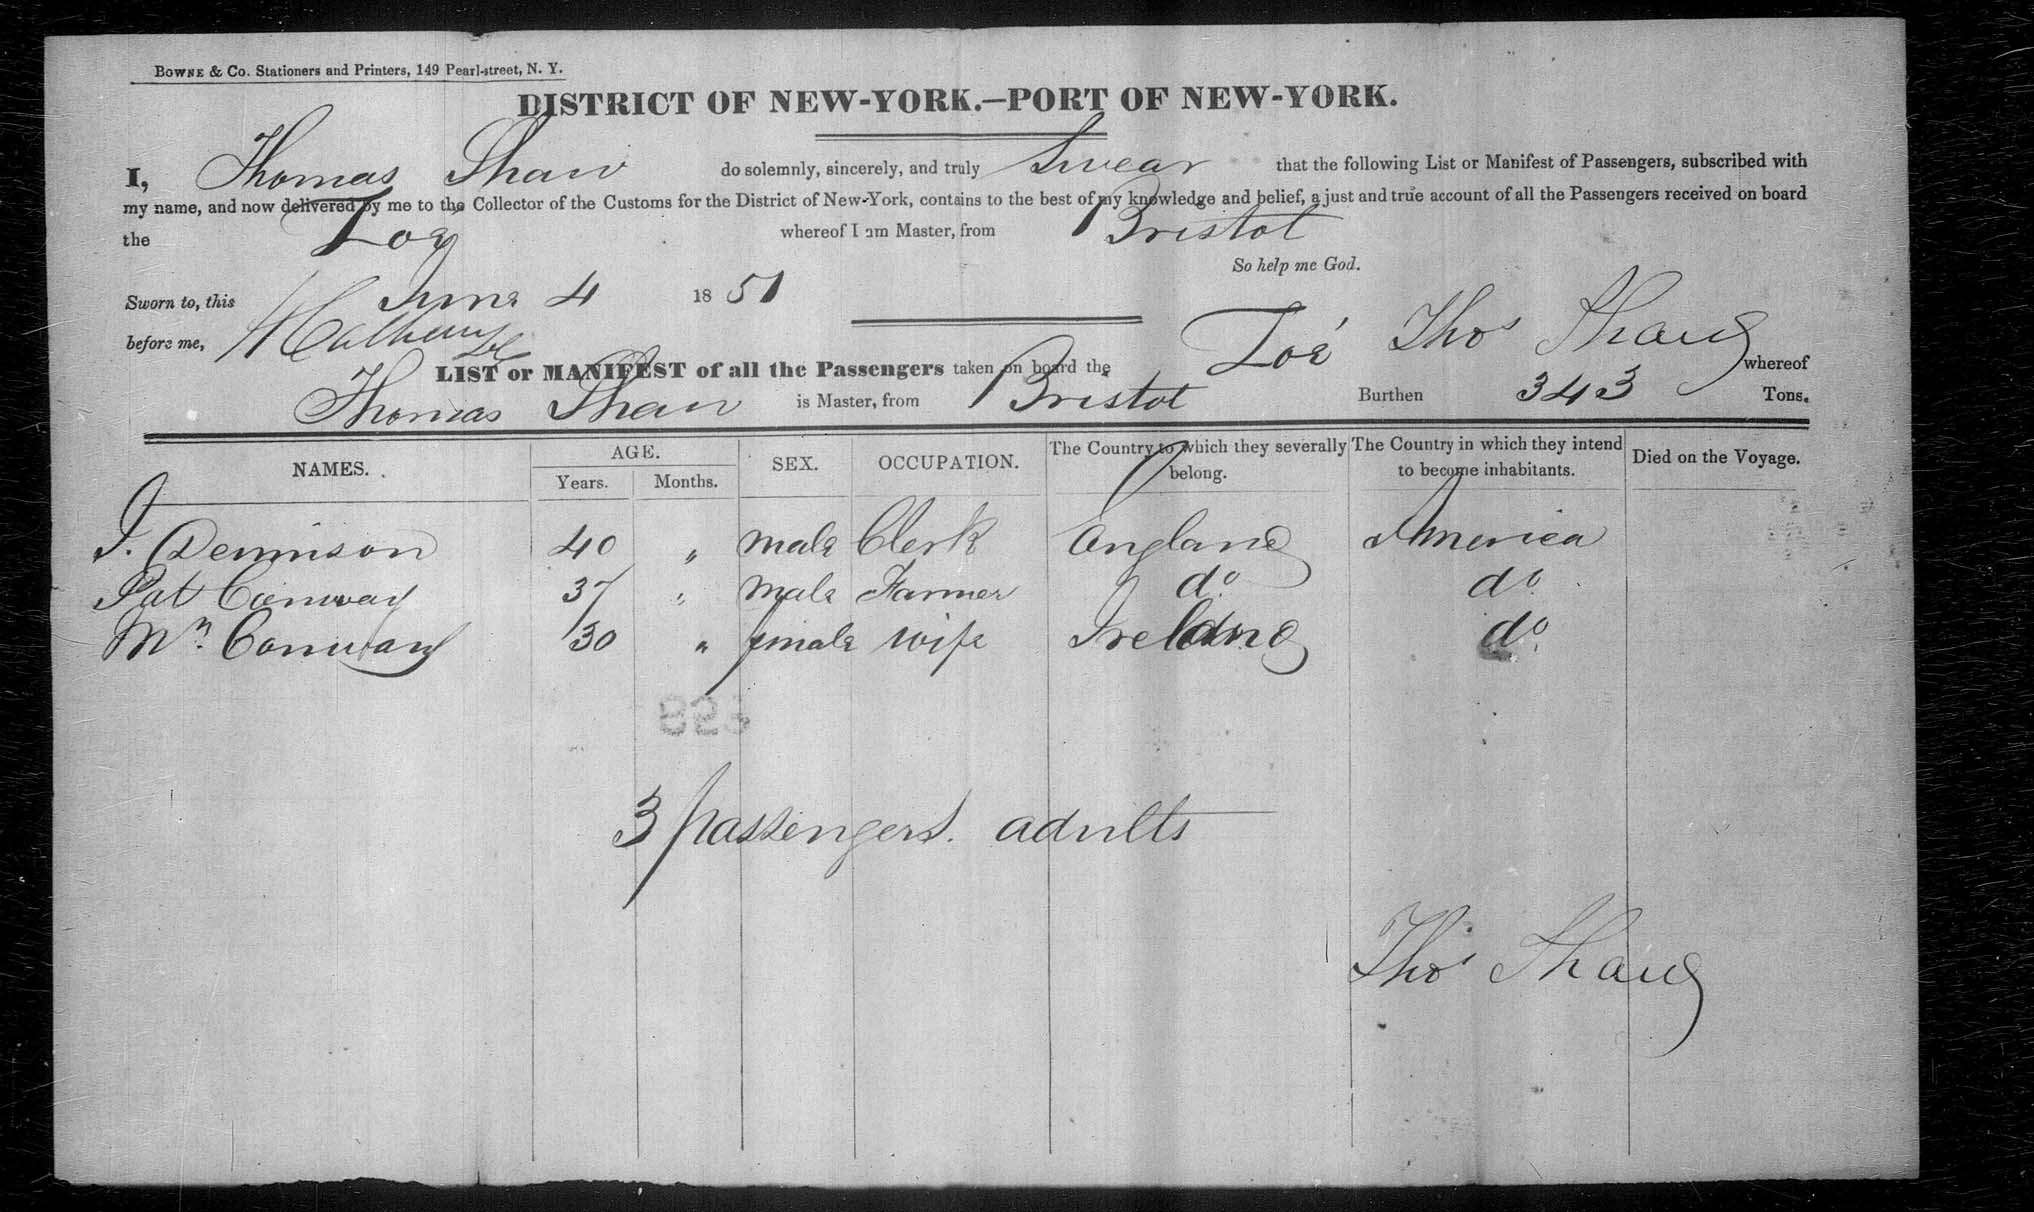 BOWNE & Co. Stationers and Printers, 149 Pearl-street, N. Y.
DISTRICT OF NEW-YORK.—PORT OF NEW-YORK.
I, Thomas Shaw do solemnly, sincerely, and truly Swear that the following List or Manifest of Passengers, subscribed with
my name, and now delivered by me to the Collector of the Customs for the District of New-York, contains to the best of my knowledge and belief, a just and true account of all the Passengers received on board
the Zoe whereof I am Master, from Bristol
So help me God.
Sworn to, this June 4 1851
before me, Thos Shaw
LIST or MANIFEST of all the Passengers taken on board the Zoe whereof
Thomas Shaw is Master, from Bristol Burthen 343 Tons.
NAMES. AGE. SEX. OCCUPATION. The Country to which they severally belong. The Country in which they intend to become inhabitants. Died on the Voyage.
Years. Months.
J. Dennison 40 " male Clerk England America
Pat Conway 37 " male Farmer do do
Mrs. Conway 30 " female wife Ireland do
3 passengers. adults
Thos Shaw